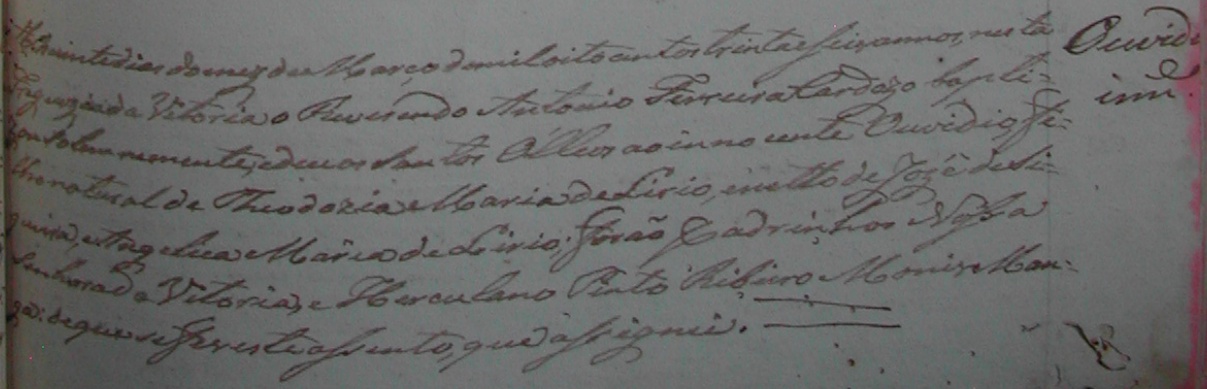 Aos vinte dias do mez de Março de mil oito centos trinta e seis annos, nesta
Freguezia da Vitoria o Reverendo Antonio Ferreira Cardozo bapti-
zou solemnemente, e deu os Santos Olleos ao innocente Ouvidio, fi-
lho natural de Theodozia Maria de Lirio, e netto de Jozé de Si-
queira, e Angelica Maria de Lirio; forão Padrinhos Nossa
Senhora da Vitoria, e Herculano Pinto Ribeiro Moniz
de que se fez este assento, que assignei.
Ouvidi
inn.